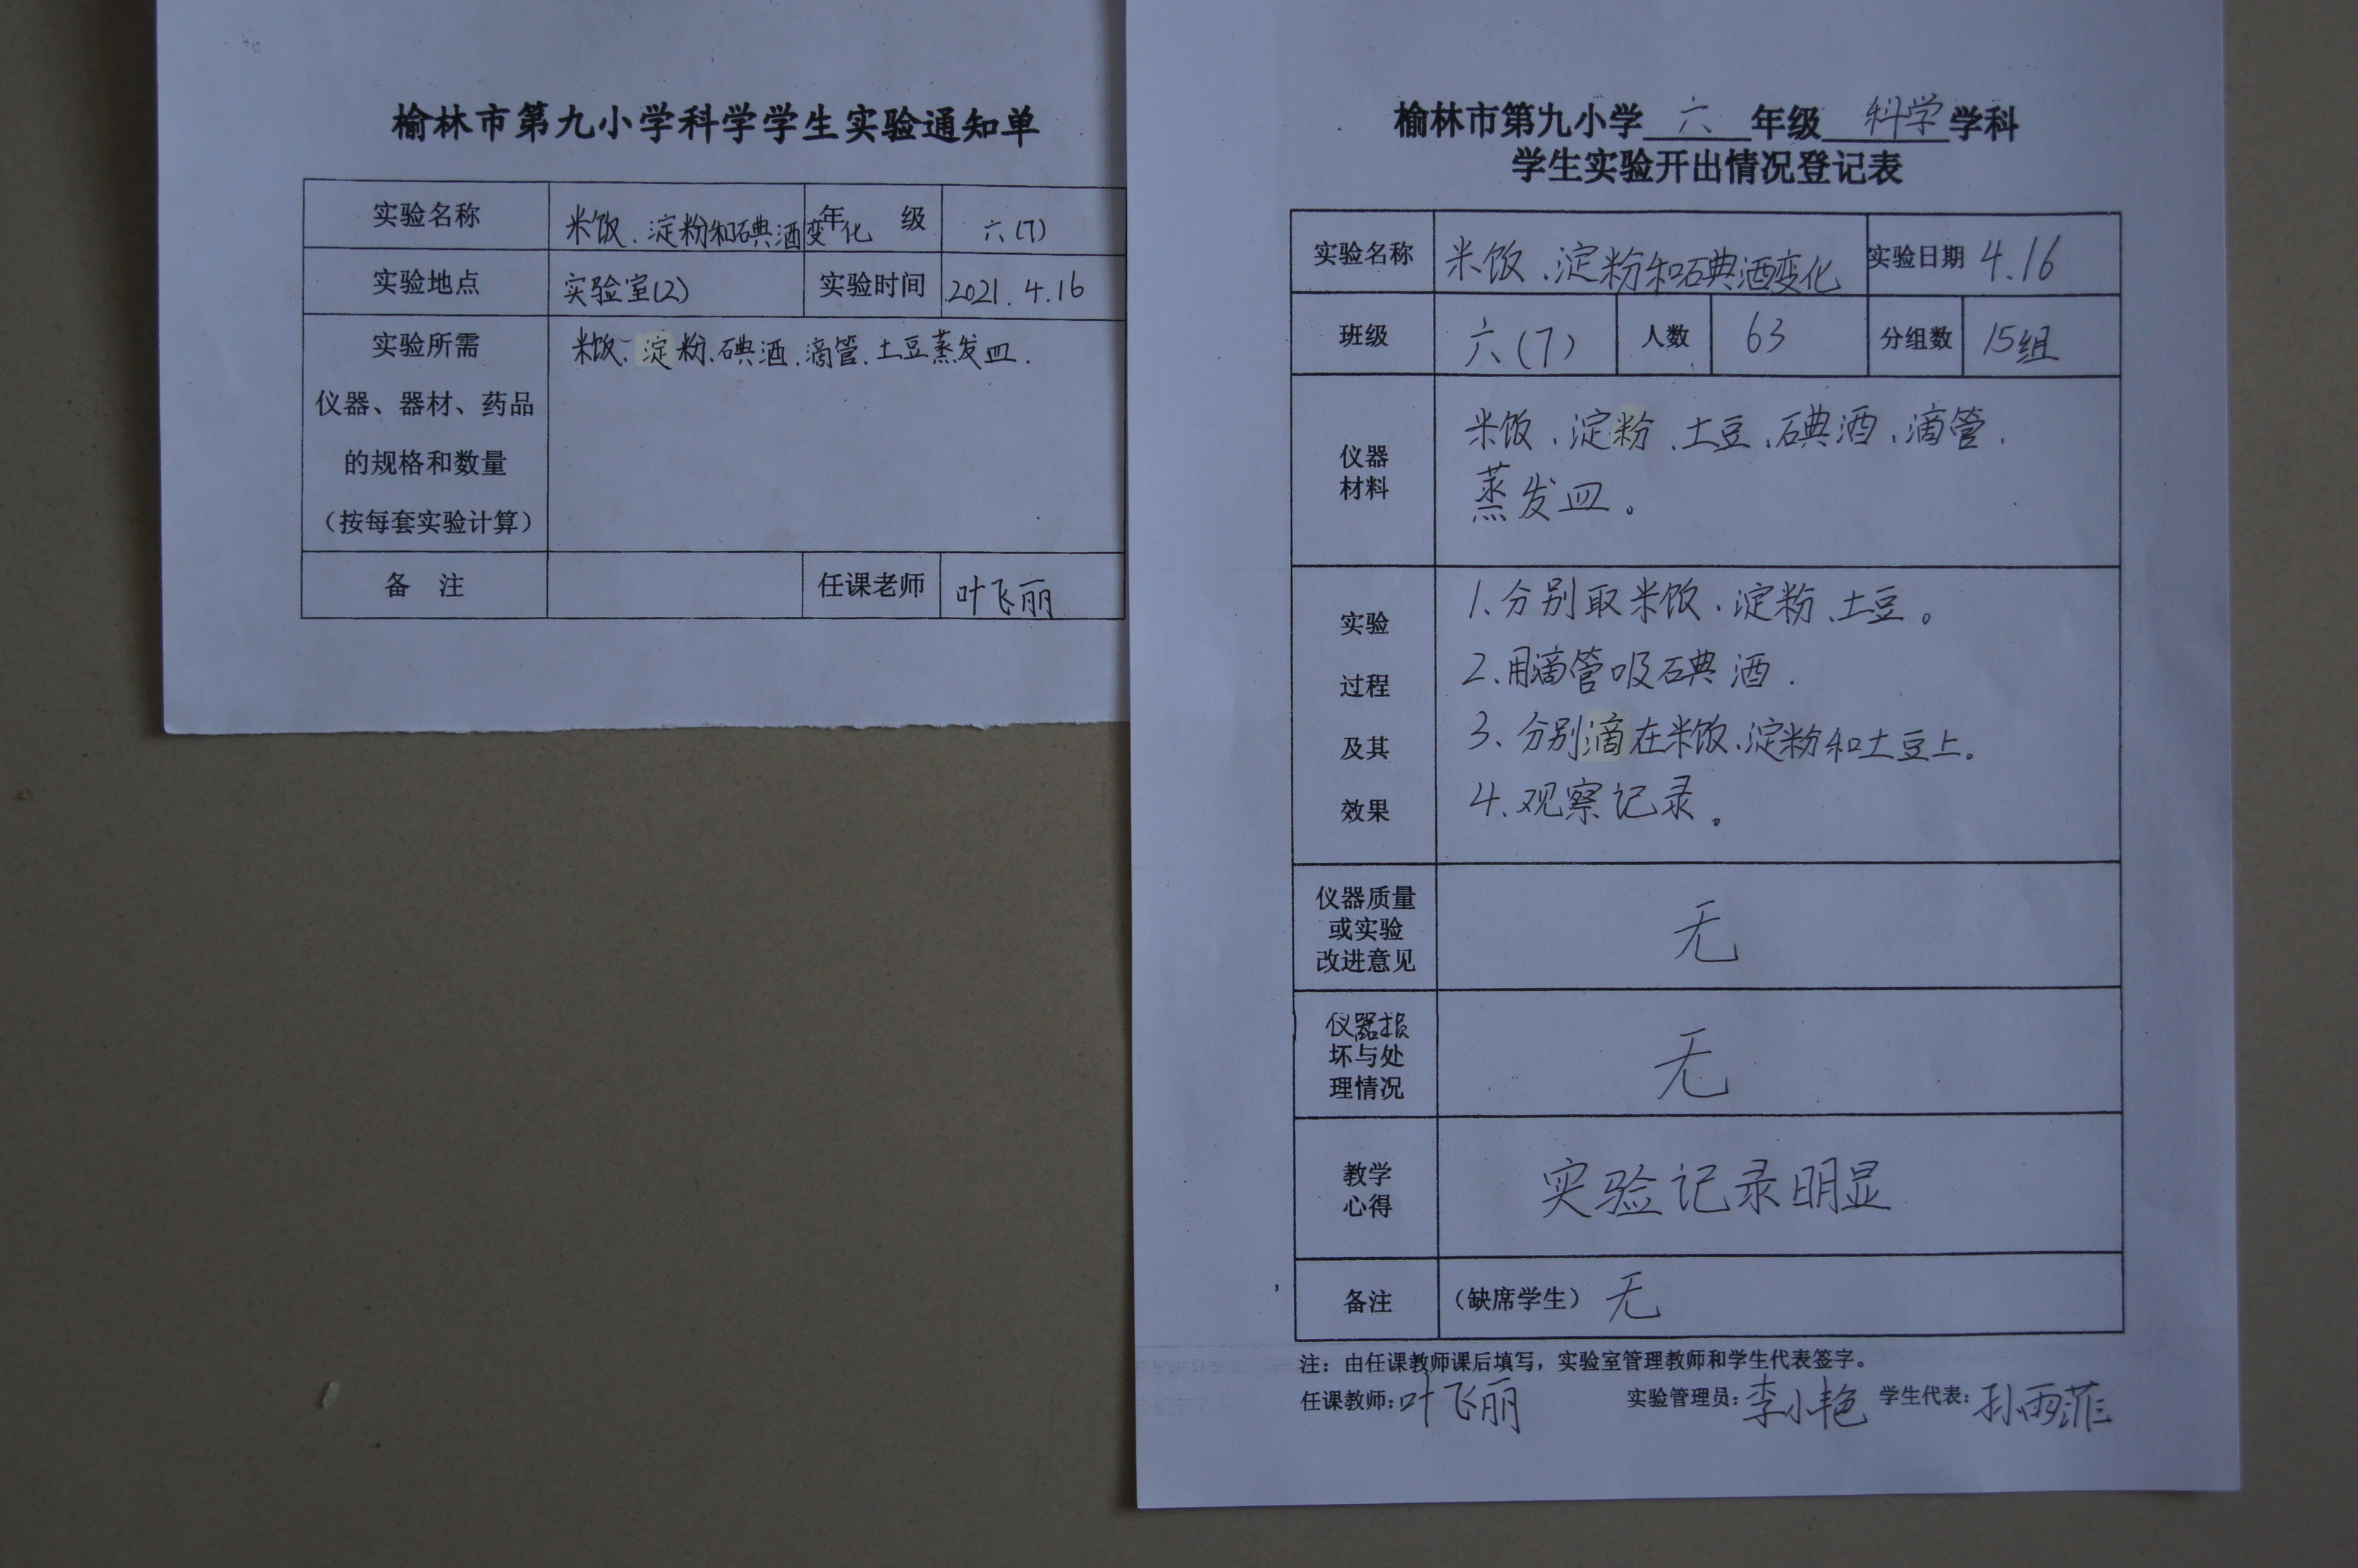 榆林市第九小学科学学生实验通知单
实验名称 米饭、淀粉和碘酒变化 年级 六(7)
实验地点 实验室(2) 实验时间 2021.4.16
实验所需 米饭、淀粉、碘酒、滴管、土豆蒸发皿.
仪器、器材、药品
的规格和数量
（按每套实验计算）
备 注 任课老师 叶飞丽
榆林市第九小学 六 年级 科学 学科
学生实验开出情况登记表
实验名称 米饭、淀粉和碘酒变化 实验日期 4.16
班级 六(7) 人数 63 分组数 15组
仪器
材料
米饭、淀粉、土豆、碘酒、滴管、
蒸发皿。
实验
过程
及其
效果
1、分别取米饭、淀粉、土豆。
2、用滴管吸碘酒.
3、分别滴在米饭、淀粉和土豆上。
4、观察记录。
仪器质量
或实验
改进意见
无
仪器损
坏与处
理情况
无
教学
心得
实验记录明显
备注 （缺席学生） 无
注：由任课教师课后填写，实验室管理教师和学生代表签字。
任课教师：叶飞丽 实验管理员：李小艳 学生代表：孙雨菲